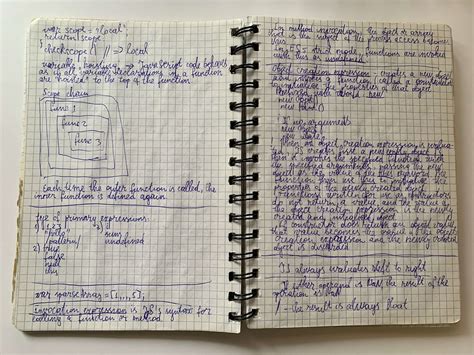 var scope = "local";
return scope;
}
checkscope() // => local
variable hoisting => JavaScript code behaves
as if all variable declarations in a function
are "hoisted" to the top of the function
Scope chain
func 1
func 2
func 3
Each time the outer function is called, the
inner function is defined again
of primary expressions:
1) 1.23
"hello"
/pattern/
2) true
false
null
this
undefined
var sparseArray = [1,,,,5];
invocation expression is JS's syntax for
calling a function or method
In method invocation, the object or array
that is the subject of the property access
this
In ES5 strict mode, functions are invoked
with this as undefined
object creation expression creates a new object
and invokes a function (called a constructor)
to initialize the properties of that object
new
new Object()
If no arguments:
new Object
new Date
When an object creation expression is evaluated,
JS creates first a new empty object,
then it invokes the specified function with
the specified arguments, passing the new
object as the value of the this keyword. The
function can use this to initialize the
properties of the newly created object.
Functions written for use as constructors
do not return a value and the value of
the object creation expression is the newly
created and initialized object.
If constructor does return an object value,
that value becomes the value of the object
creation expression and the newly created
object is discarded
JS always evaluates left to right
If either operand is NaN the result of the
operation is NaN
/ - the result is always float